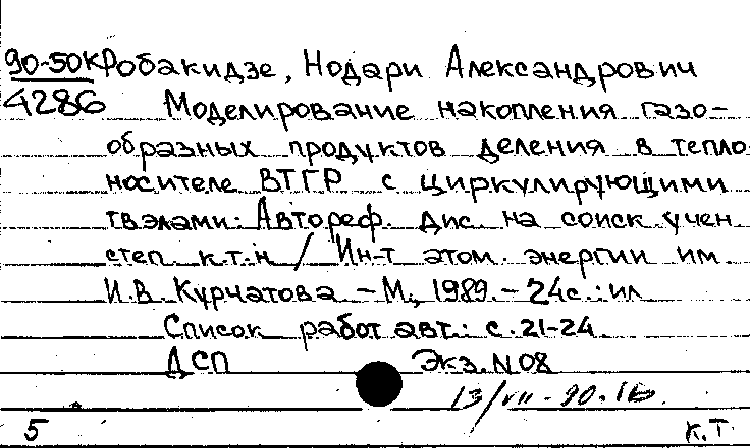 90-50К Робакидзе, Нодари Александрович
4286 Моделирование накопления газо-
образных продуктов деления в тепло
носителе ВТГР с циркулирующими
твэлами: Автореф. дис. на соиск. учен
степ. к.т.н / Ин-т атом. энергии им.
И.В. Курчатова - М., 1989. - 24с.: ил
Список работ авт.: с. 21-24.
ДСП Экз. N 08
13/VII - 90. 16.
5 К.Т